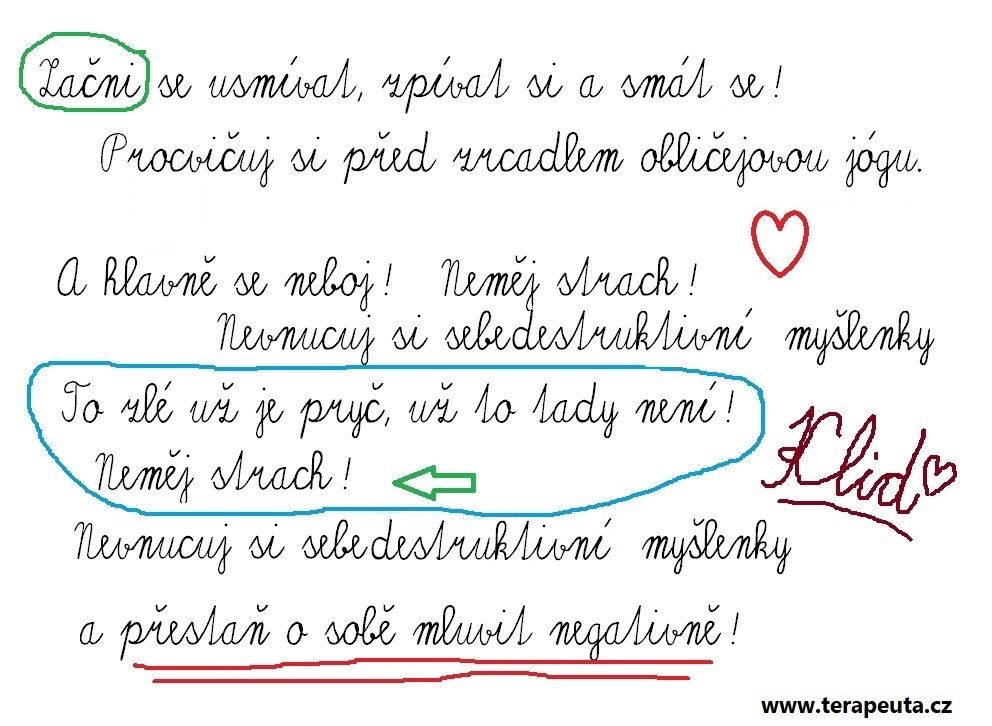 Začni se usmívat, zpívat si a smát se!
Procvičuj si před zrcadlem obličejovou jógu.
A hlavně se neboj! Neměj strach!
Nevnucuj si sebedestruktivní myšlenky
To zlé už je pryč, už to tady není!
Neměj strach!
Klid
Nevnucuj si sebedestruktivní myšlenky
a přestaň o sobě mluvit negativně!
www.terapeuta.cz